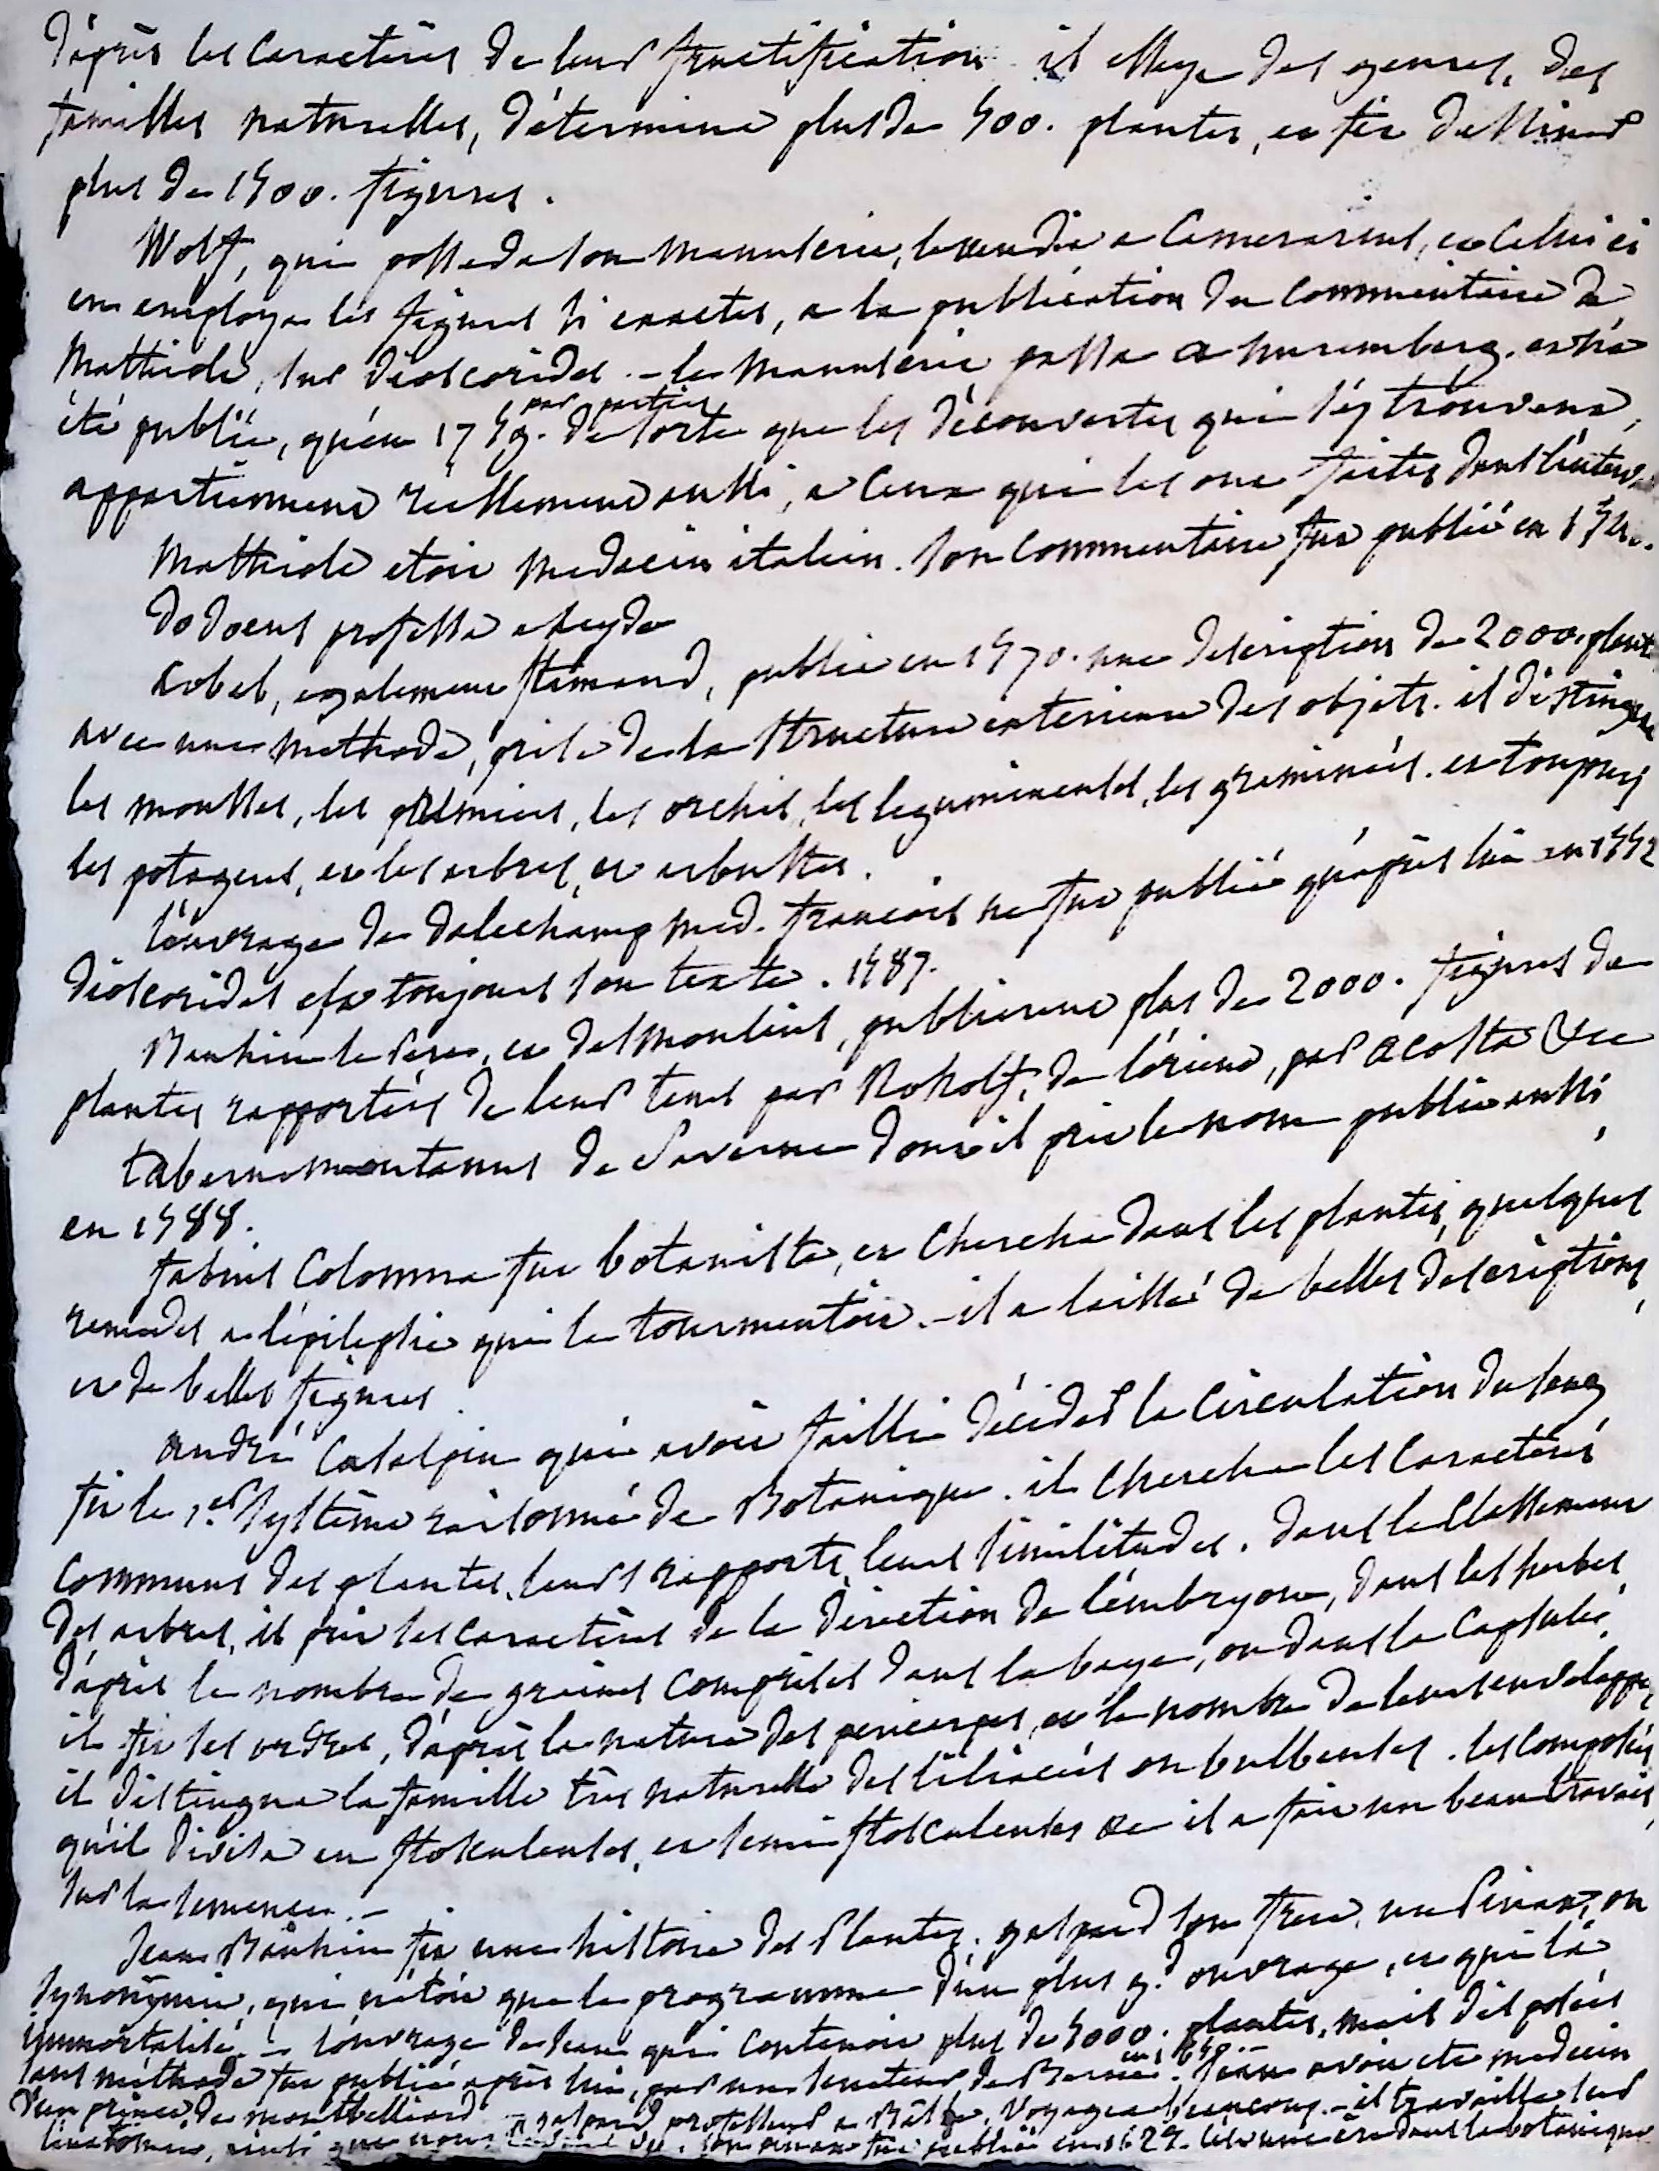 d'après les caractères de leur fructification il essaya des genres, des
familles naturelles, détermina plus de 500. plantes, et fit dessiner
plus de 1500. figures.
Wolf, qui posseda son manuscrit, le vendit a Camerarius, et Celui ci
en employa les figures si exactes, a la publication du Commentaire de
Matthiole, sur dioscorides. - le manuscrit passa a nuremberg. et n'a
été publié, qu'en 175 . par parties de sorte que les découvertes qui s'y trouvent,
appartiennent reellement aussi, a Ceux qui les ont faites dans l'interv
Matthiole etoit medecin italien. son Commentaire fut publié en
dodoens professa a leyde
Lobel, egalement flamand, publia en 1570. une description de 2000. plant
avec une methode, prise de la structure exterieure des objets. il distingua
les mousses, les les orchis, les legumineuses, les graminées. et toujours
les potagers, et les arbres, et arbustes.
l'ouvrage de dalechamp med. francois ne fut publié qu'après lui en 1552
dioscorides est toujours son texte. 1587.
Bauhin le Pere, et desmoulins, publierent plus de 2000. figures de
plantes rapportées de leur tems par Rokolf, de l'orient, par acosta &c
tabernemontanus de Saverne dont il prit le nom publia aussi,
en 1588.
fabius Colonna fut botaniste, et Chercha dans les plantes, quelques
remedes a l'épilepsie qui le tourmentoit. - il a laissé de belles descriptions,
et de belles figures.
andré Cesalpin qui avoit failli décider la Circulation du sang
fit le 1er. systême raisonné de Botanique. il Chercha les Caractères
Communs des plantes, leurs rapports, leurs similitudes. dans le Classement
des arbres, il prit les caractères de la direction de l'embryon, dans les herbes
d'après le nombre de graines Comprises dans la baye, ou dans la Capsule,
il fit les ordres, d'après la nature des pericarpes, et le nombre de leurs enveloppes
il distingua la famille très naturelle des liliacées ou bulbeuses. les Composées
qu'il divisa en flosculeuses, et semi flosculeuses &c il a fait un beau travail
sur la semence. -
Jean Bauhin fit une histoire des Plantes. gaspard son frere, un Pinax, ou
synonymie, qui n'étoit que le programme d'un plus gd. ouvrage, et qui l'a
immortalisé. - l'ouvrage de Jean qui Contenoit plus de 5000. plantes, mais disposées
sans méthode fut publié après lui, par un senateur de Berne. en 1650. - Jean avoit eté medecin
d'un prince de montbelliard - gaspard professeur a Bâle, Voyagea beaucoup. - il travailla sur
l'anatomie, ainsi que nous l'avons vu. son pinax fut publié en 1629. C'est une ère dans la botanique